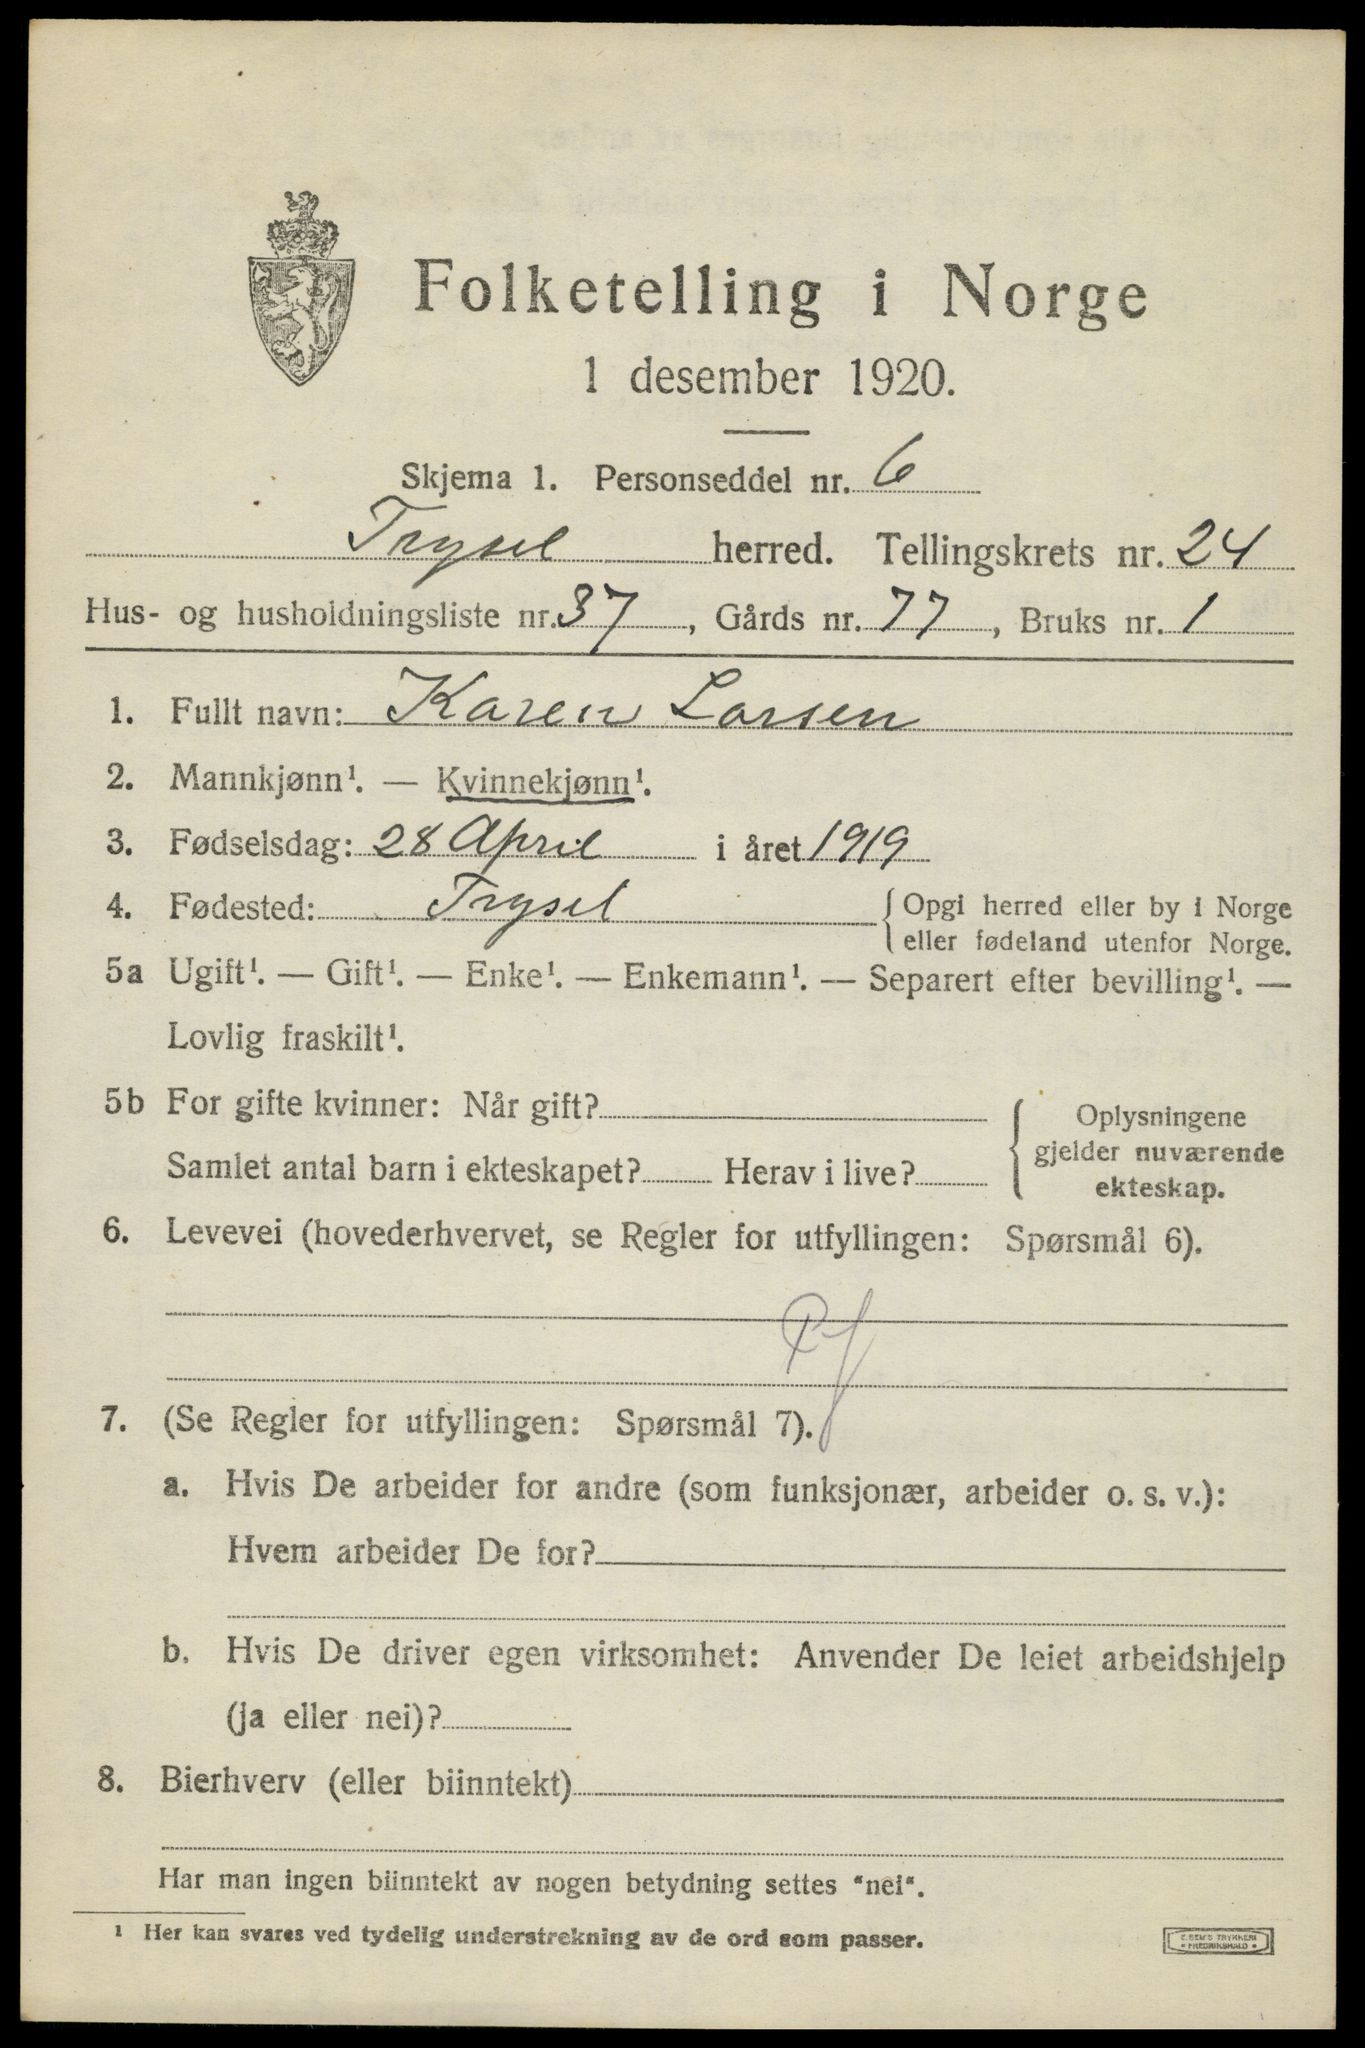 Folketelling i Norge
1 desember 1920.
Skjema 1. Personseddel nr. 6
Trysil herred. Tellingskrets nr. 24
Hus- og husholdningsliste nr. 37, Gårds nr. 77, Bruks nr. 1
1. Fullt navn: Karen Larsen
2. Mannkjønn¹. — Kvinnekjønn¹.
3. Fødselsdag: 28 April i året 1919
4. Fødested: Trysil { Opgi herred eller by i Norge
eller fødeland utenfor Norge.
5a Ugift¹. — Gift¹. — Enke¹. — Enkemann¹. — Separert efter bevilling¹. —
Lovlig fraskilt¹.
5b For gifte kvinner: Når gift? { Oplysningene
gjelder nuværende
ekteskap.
Samlet antal barn i ekteskapet? Herav i live?
6. Levevei (hovederhvervet, se Regler for utfyllingen: Spørsmål 6).
7. (Se Regler for utfyllingen: Spørsmål 7).
a. Hvis De arbeider for andre (som funksjonær, arbeider o. s. v.):
Hvem arbeider De for?
b. Hvis De driver egen virksomhet: Anvender De leiet arbeidshjelp
(ja eller nei)?
8. Bierhverv (eller biinntekt)
Har man ingen biinntekt av nogen betydning settes "nei".
¹ Her kan svares ved tydelig understrekning av de ord som passer.
E. SEM'S TRYKKERI
• FREDRIKSHALD •